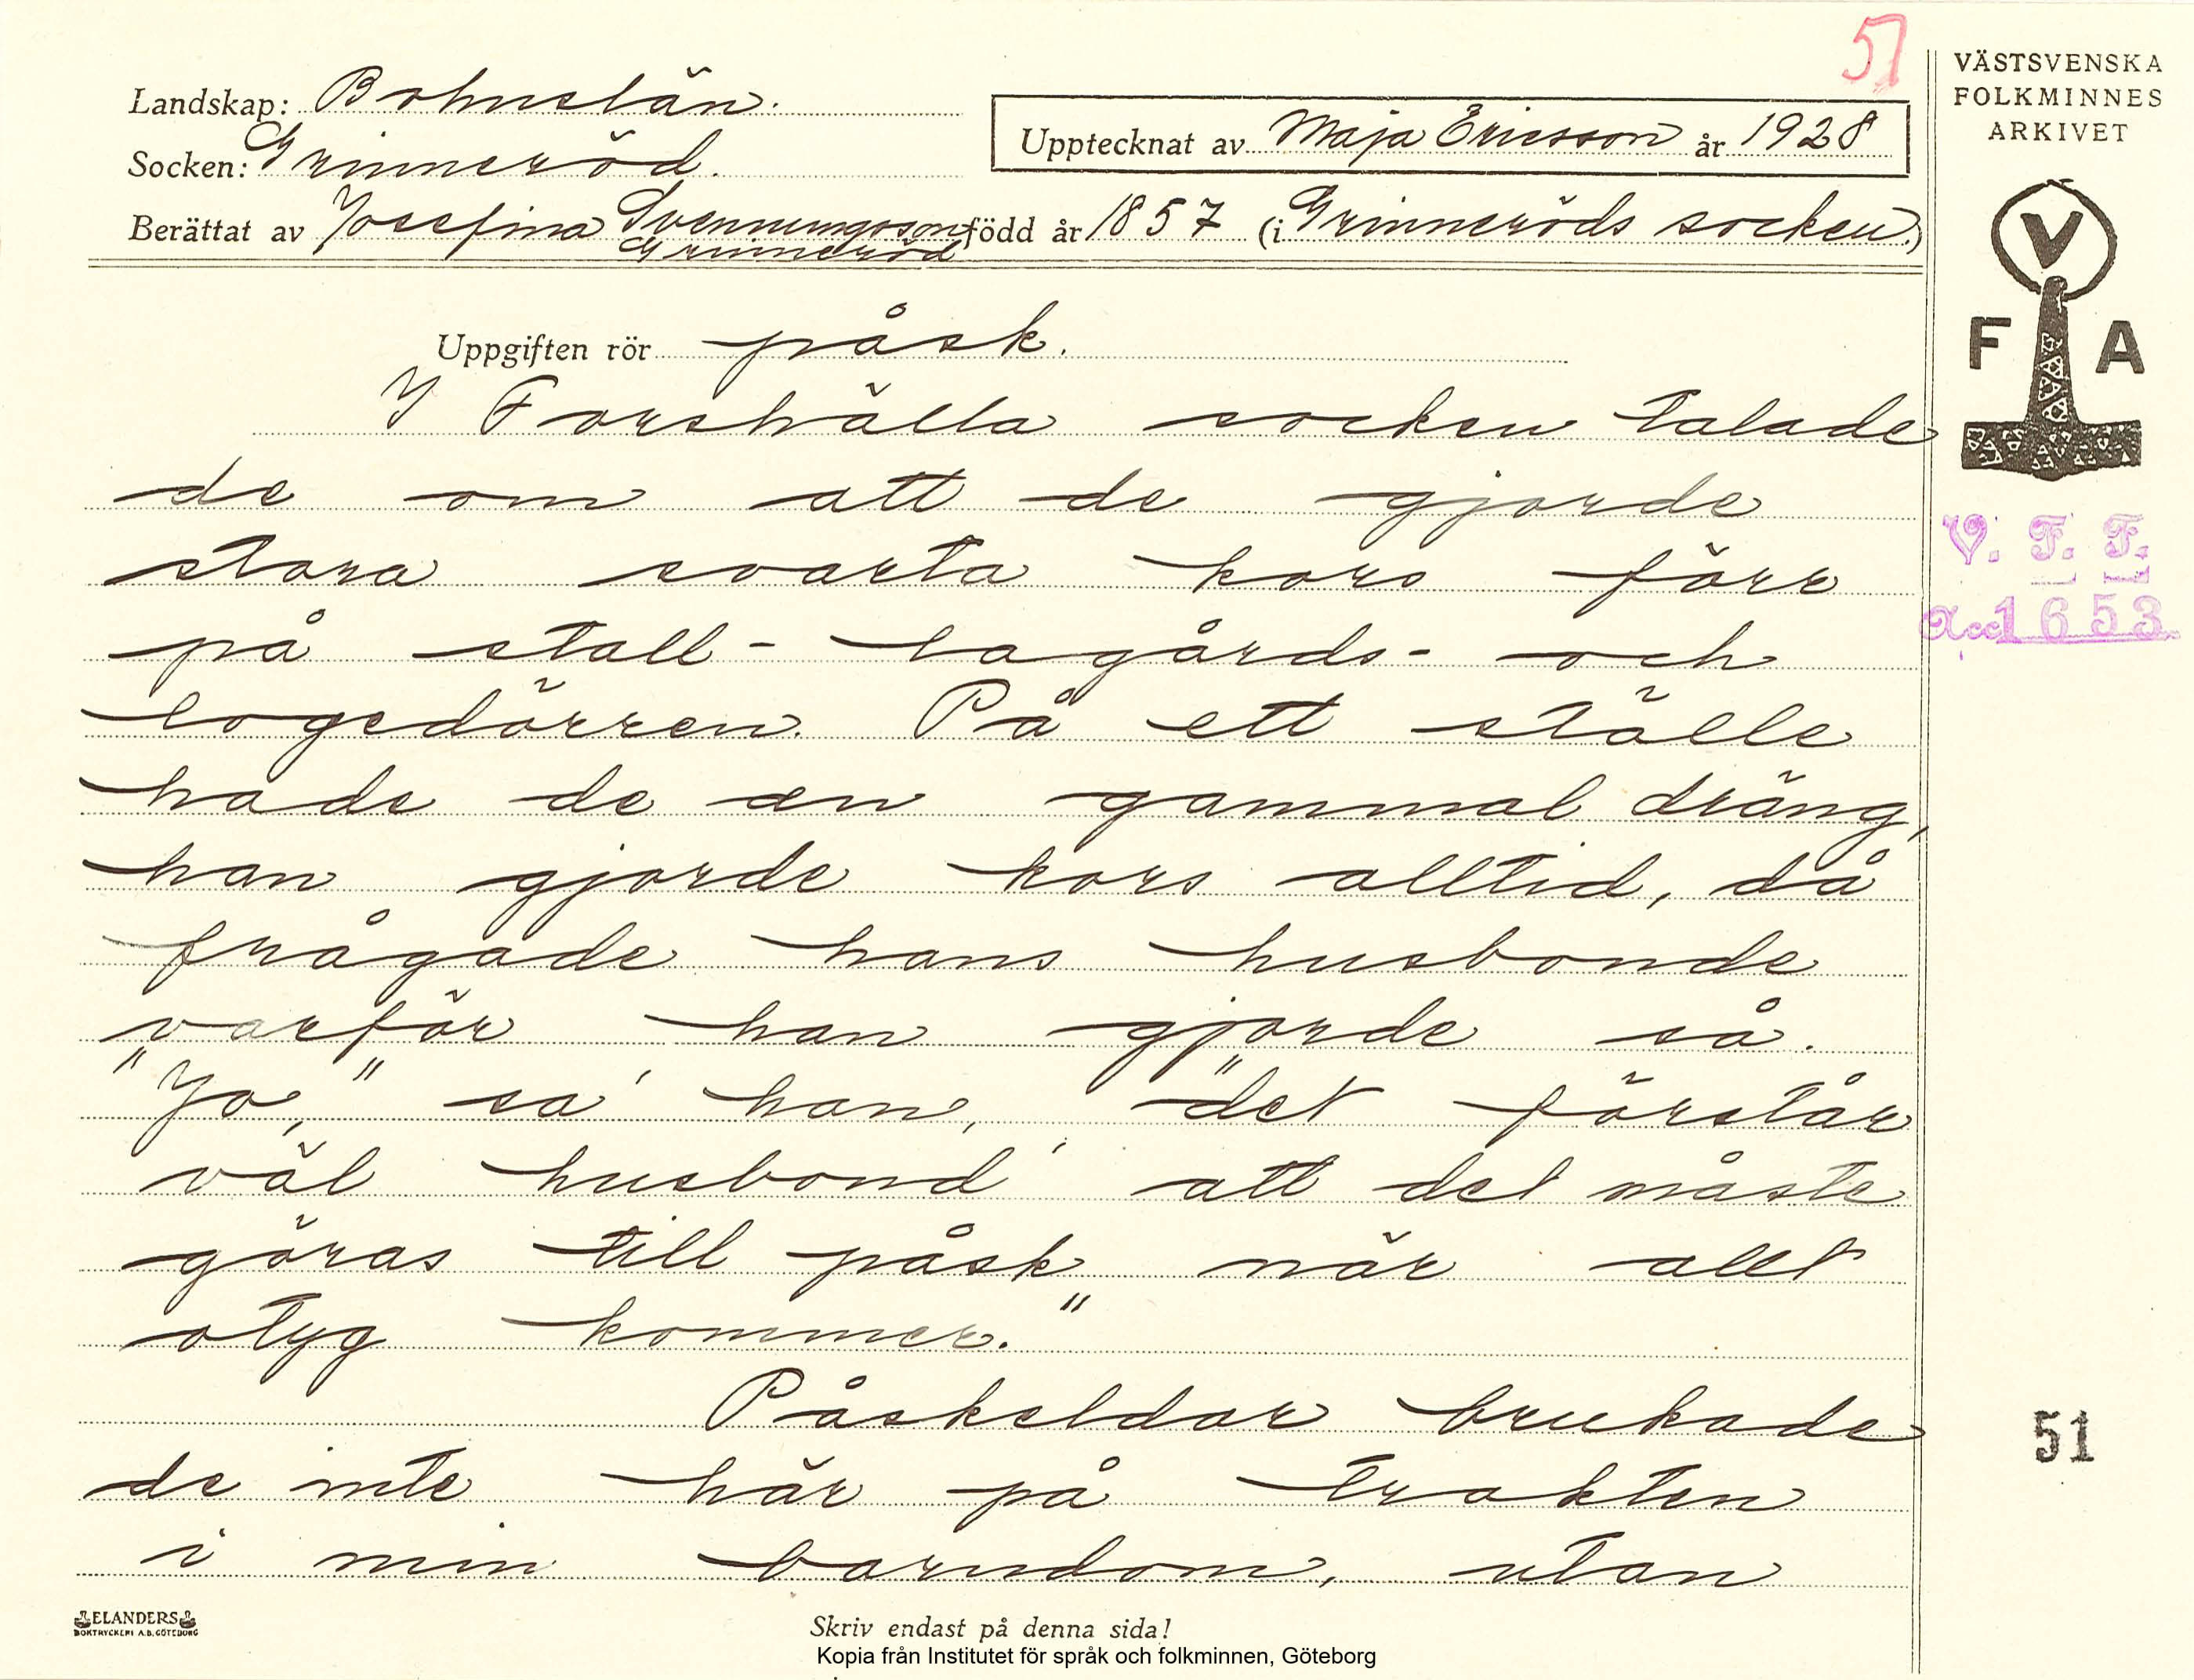 51
VÄSTSVENSKA
FOLKMINNES
ARKIVET
Landskap: Bohuslän.
Upptecknat av Maja Ericsson år 1928
Socken: Grinneröd.
Berättat av Josefina Svenningsson född år 1857 (i Grinneröds socken.)
Grinneröd
V
F A
Uppgiften rör påsk.
I Forshälla socken talade
de om att de gjorde
stora svarta kors förr
på stall- lagårds- och
logedörren. På ett ställe
hade de en gammal dräng,
han gjorde kors alltid, då
frågade hans husbonde
varför han gjorde så.
"Jo," sa' han, "det förstår
väl husbond' att det måste
göras till påsk när allt
otyg kommer."
Påskeldar brukade
de inte här på trakten
i min barndom, utan
V. F. F.
Acc 1653
51
ELANDERS
BOKTRYCKERI A.B. GÖTEBORG
Skriv endast på denna sida!
Kopia från Institutet för språk och folkminnen, Göteborg